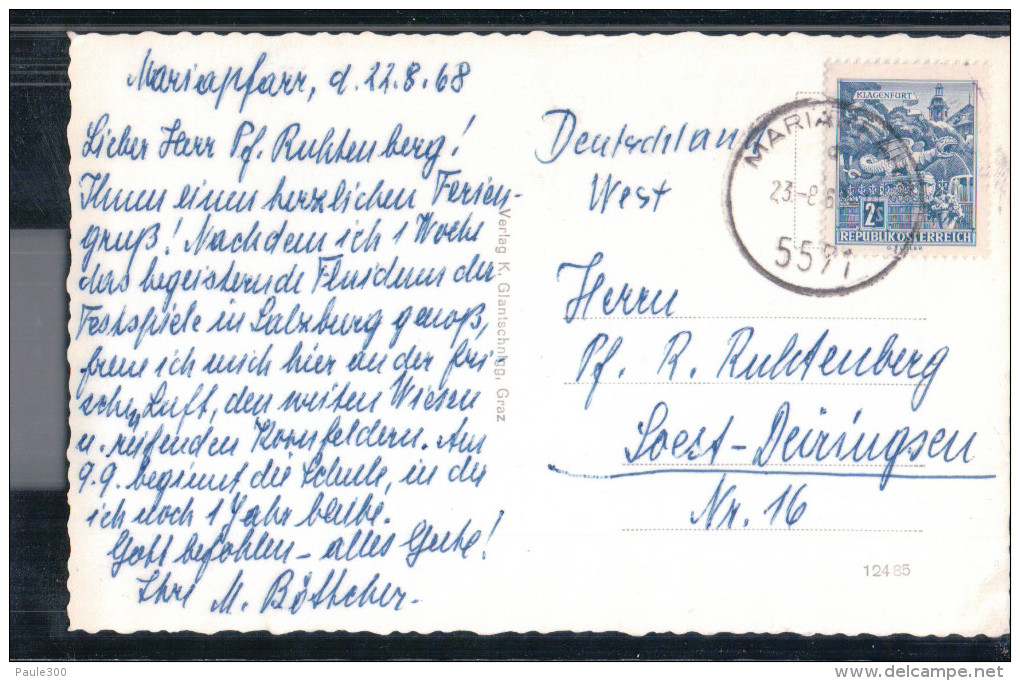 Mariapfarr, d. 22.8.68
Lieber Herr Pf. Ruhtenberg!
Ihnen einen herzlichen Ferien-
gruß! Nachdem ich 1 Woche
das begeisternde Fluidum der
Festspiele in Salzburg genoß,
freue ich mich hier an der fri
schen Luft, den weiten Wiesen
u. reifenden Kornfeldern. Am
9.9. beginnt die Schule, in der
ich noch 1 Jahr bleibe.
Gott befohlen - alles Gute!
Ihre M. Böttcher.
Verlag K. Glantschnigg, Graz
Deutschland
West
Herrn
Pf. R. Ruhtenberg
Soest-Deiringsen
Nr. 16
12485
KLAGENFURT
2S
REPUBLIK ÖSTERREICH
MARIA
23.-8.6
5571
Paule300